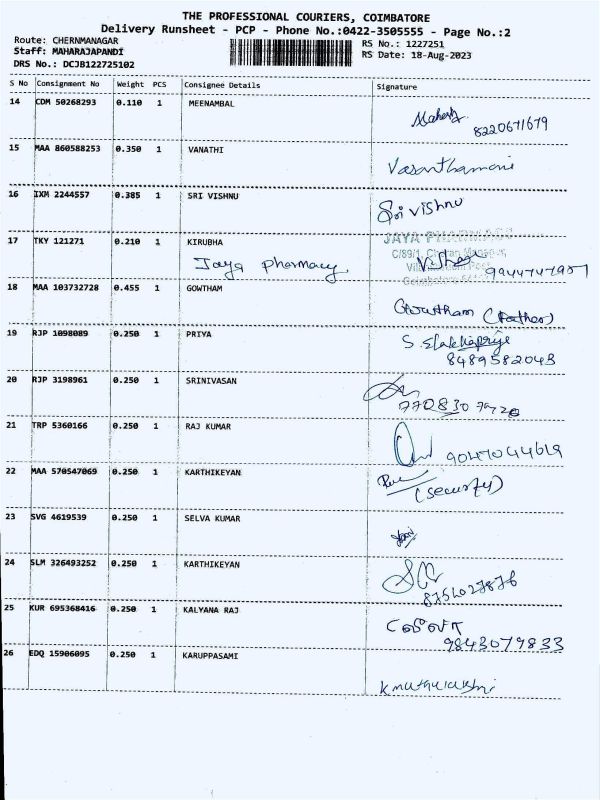 THE PROFESSIONAL COURIERS, COIMBATORE
Delivery Runsheet - PCP - Phone No.:0422-3505555 - Page No.:2
Route: CHERNMANAGAR
Staff: MAHARAJAPANDI
DRS No.: DCJB122725102
RS No.: 1227251
RS Date: 18-Aug-2023
S No Consignment No Weight PCS Consignee Details Signature
14 CDM 50268293 0.110 1 MEENAMBAL
Mahesh 8220671679
15 MAA 860588253 0.350 1 VANATHI
Vasanthamani
16 IXM 2244557 0.385 1 SRI VISHNU
Sri Vishnu
17 TKY 121271 0.210 1 KIRUBHA
Jaya Pharmacy
JAYA PHARMACY
C/89/1,
9944747957
18 MAA 103732728 0.455 1 GOWTHAM
Gowtham (Father)
19 RJP 1098089 0.250 1 PRIYA
S. Elakkiapriya
8489582043
20 RJP 3198961 0.250 1 SRINIVASAN
7708307920
21 TRP 5360166 0.250 1 RAJ KUMAR
9047044619
22 MAA 570547069 0.250 1 KARTHIKEYAN
(security)
23 SVG 4619539 0.250 1 SELVA KUMAR
24 SLM 326493252 0.250 1 KARTHIKEYAN
8754027876
25 KUR 695368416 0.250 1 KALYANA RAJ
9843079833
26 EDQ 15906095 0.250 1 KARUPPASAMI
K muthulakshmi